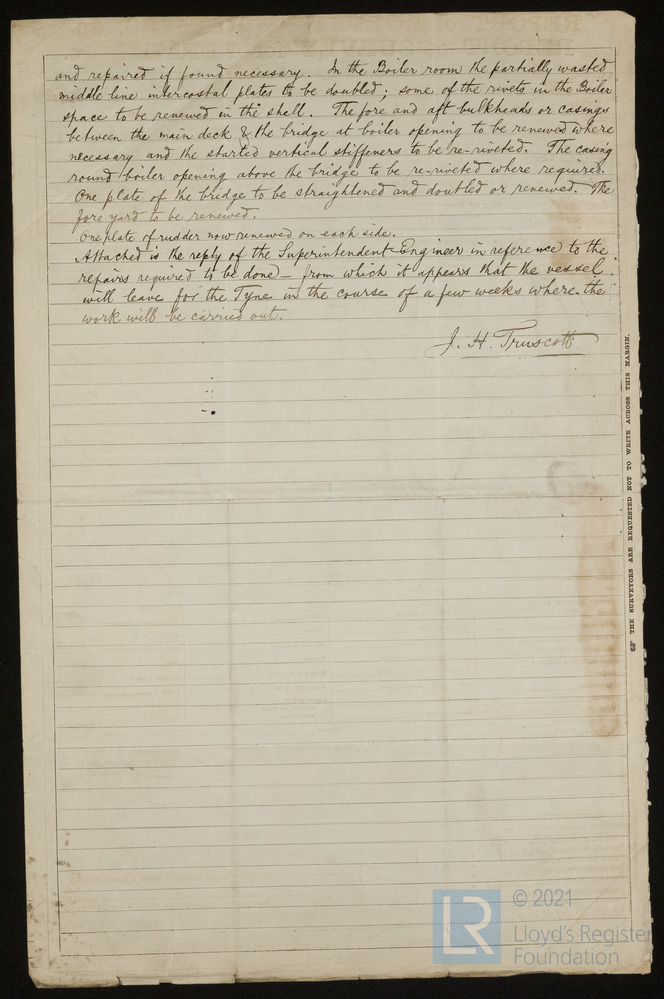 and repaired if found necessary. In the Boiler room the partially wasted
middle line intercostal plates to be doubled; some of the rivets in the Boiler
space to be renewed in the shell. The fore and aft bulkheads or casings
between the main deck & the bridge at boiler opening to be renewed where
necessary and the started vertical stiffeners to be re-riveted. The casing
round boiler opening above the bridge to be re-riveted where required.
One plate of the bridge to be straightened and doubled or renewed. The
fore yard to be renewed.
One plate of rudder now renewed on each side.
Attached is the reply of the Superintendent Engineer in reference to the
repairs required to be done - from which it appears that the vessel
will leave for the Tyne in the course of a few weeks where the
work will be carried out.
J. H. Truscott
☞ THE SURVEYORS ARE REQUESTED NOT TO WRITE ACROSS THIS MARGIN.
LR
© 2021
Lloyd's Register
Foundation